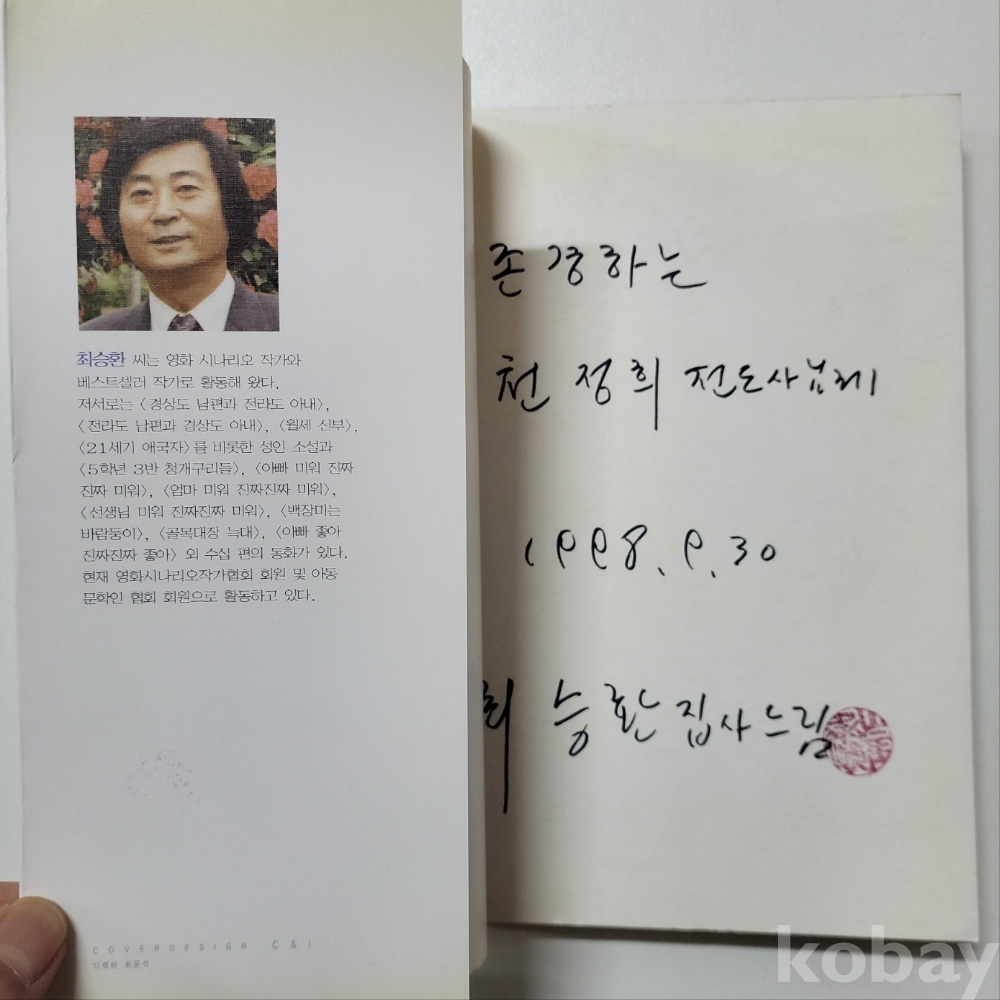 최승환 씨는 영화 시나리오 작가와
베스트셀러 작가로 활동해 왔다.
저서로는 〈경상도 남편과 전라도 아내〉,
〈전라도 남편과 경상도 아내〉, 〈월세 신부〉,
〈21세기 애국자〉를 비롯한 성인 소설과
〈5학년 3반 청개구리들〉, 〈아빠 미워 진짜
진짜 미워〉, 〈엄마 미워 진짜진짜 미워〉,
〈선생님 미워 진짜진짜 미워〉, 〈백장미는
바람둥이〉, 〈골목대장 늑대〉, 〈아빠 좋아
진짜진짜 좋아〉 외 수십 편의 동화가 있다.
현재 영화시나리오작가협회 회원 및 아동
문학인 협회 회원으로 활동하고 있다.
COVERDESIGN C&I
디렉터 최윤석
존경하는
천정희 전도사님께
1998. 9. 30
최승환 집사 드림
kobay